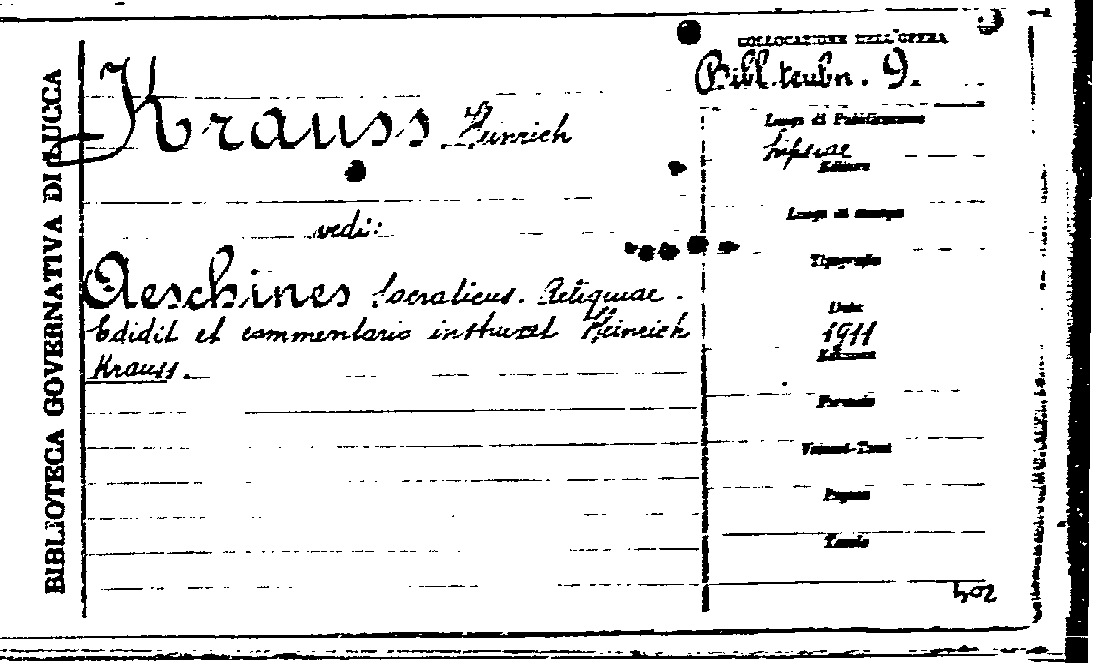 BIBLIOTECA GOVERNATIVA DI LUCCA
COLLOCAZIONE DELL'OPERA
Bibl. teubn. 9.
Krauss Heinrich
vedi:
Aeschines Socraticus. Reliquiae.
Edidit et commentario instruxit Heinrich
Krauss.
Luogo di Pubblicazione
Lipsiae
Editore
Luogo di stampa
Tipografia
Data
1911
Edizione
Formato
Volumi-Tomi
Pagine
Tavole